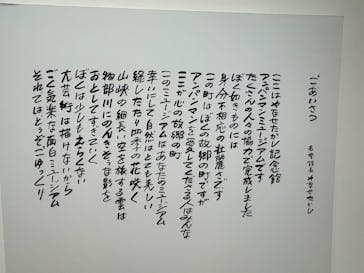 ごあいさつ
やなせたかし
ここはやなせたかし記念館
アンパンマンミュージアムです
たくさんの人々の協力で完成しました
ぼく如きものには
身分不相応の壮麗さです
この町はぼくの故郷の町ですが
アンパンマンを愛してくださる人はみんな
ここが心の故郷の町
このミュージアムはあなたのミュージアム
幸いにして自然はとても美しい
緑したたり四季の花咲く
山峡の細長い空を旅する雲は
物部川にのんきそうな影を
おとしてすぎていく
ぼくは少しもえらくない
大芸術は描けないから
ごく気楽な面白ミュージアム
それではどうぞごゆっくり